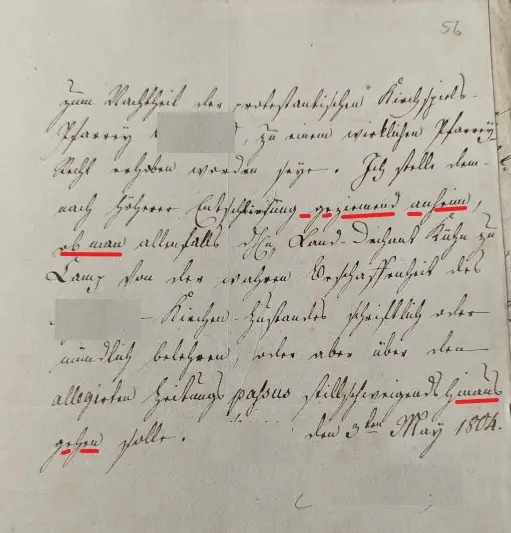 56
zum Nachtheil der protestantischen Kirchspiels-
Pfarrey, zu einem wirklichen Pfarrey
Recht erhoben worden seye. Ich stelle dem-
nach höherer Entschliesung geziemend anheim,
ob man allenfalls H. Land-Dechant Kühn zu
Camp von der wahren Beschaffenheit des
-Kirchen-Zustandes schriftlich oder
mündlich belehren, oder aber über den
allegirten Zeitungs passus stillschweigends hinaus
gehen solle. den 3ten May 1804.